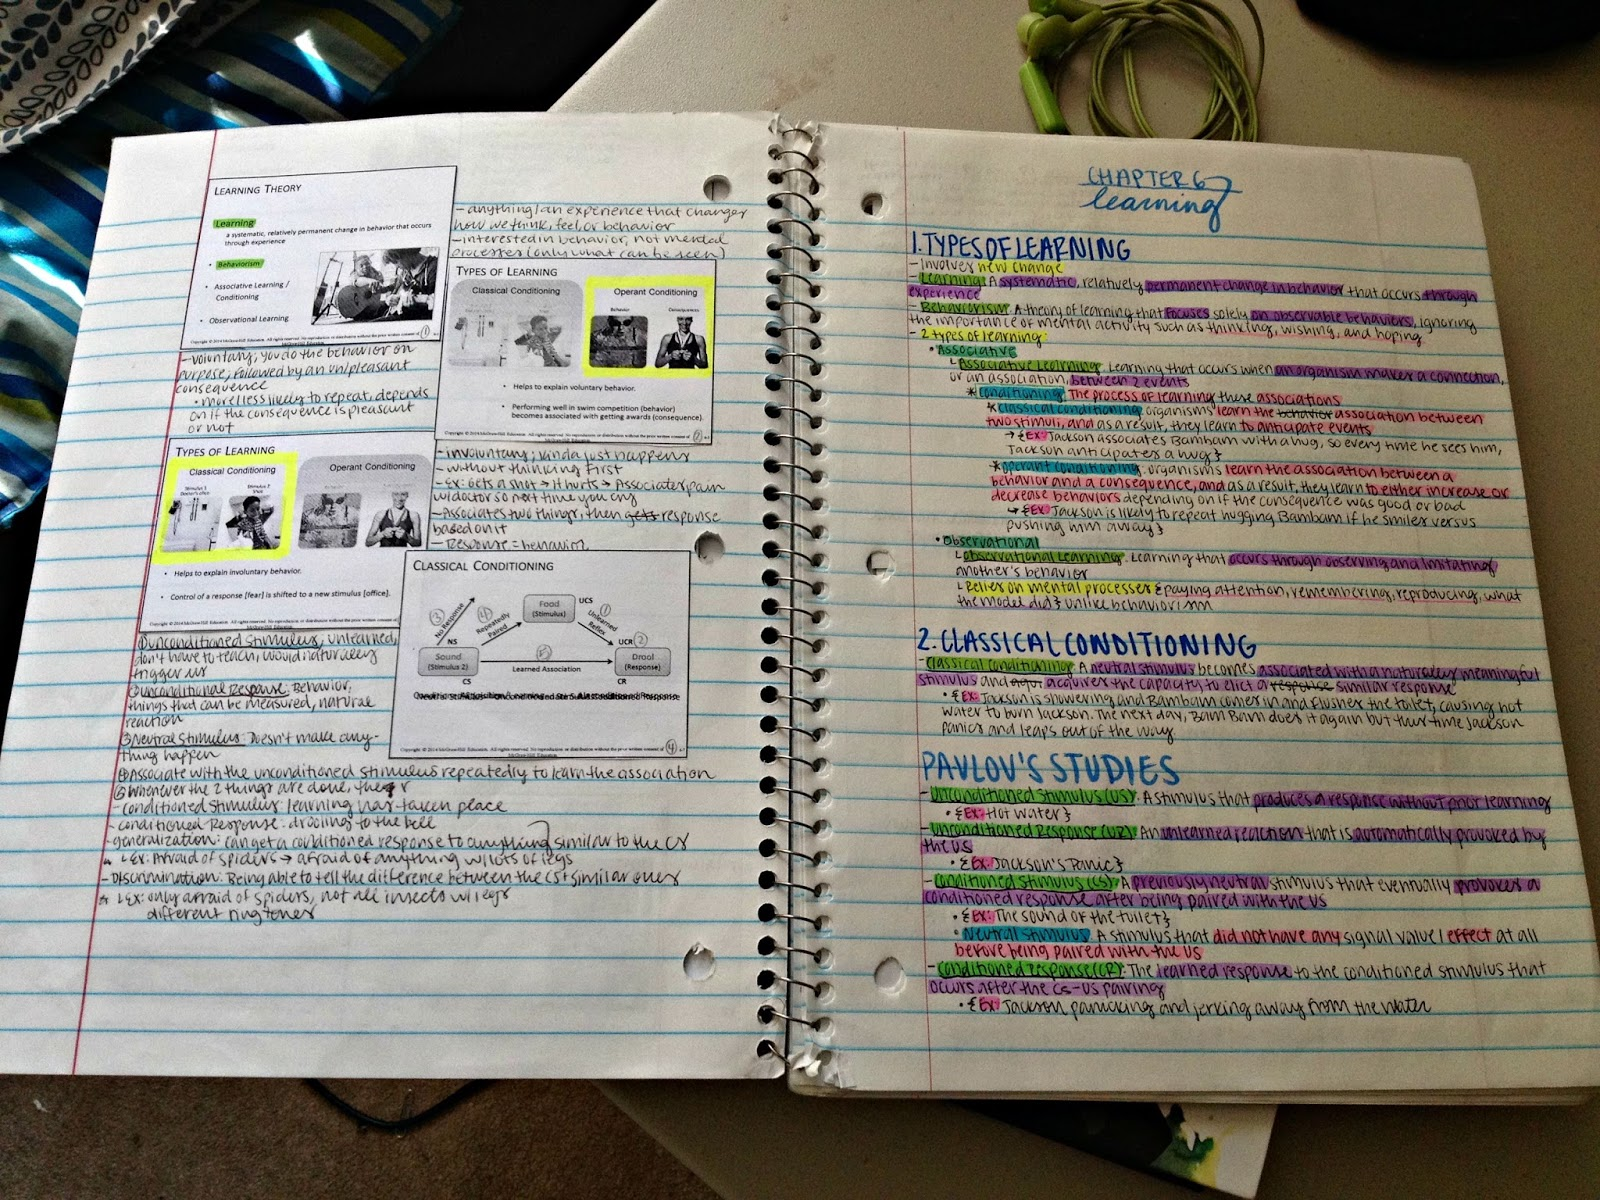 LEARNING THEORY
Learning
a systematic, relatively permanent change in behavior that occurs
through experience
• Behaviorism
• Associative Learning /
Conditioning
• Observational Learning
Copyright © 2014 McGraw-Hill Education. All rights reserved. No reproduction or distribution without the prior written consent of
McGraw-Hill Education
1
- anything/an experience that changer
how we think, feel, or behavior
- interested in behavior, not mental
processes (only what can be seen)
TYPES OF LEARNING
Classical Conditioning
Operant Conditioning
Behavior
Consequences
• Helps to explain voluntary behavior.
• Performing well in swim competition (behavior)
becomes associated with getting awards (consequence).
Copyright © 2014 McGraw-Hill Education. All rights reserved. No reproduction or distribution without the prior written consent of
2
- voluntary, you do the behavior on
purpose, followed by an un/pleasant
consequence
• more/less likely to repeat, depends
on if the consequence is pleasant
or not
TYPES OF LEARNING
Classical Conditioning
Operant Conditioning
Stimulus 1
Doctor's office
Stimulus 2
Shot
• Helps to explain involuntary behavior.
• Control of a response [fear] is shifted to a new stimulus [office].
- involuntary; kinda just happens
- without thinking first
- Ex: Gets a shot → it hurts → Associates pain
w/doctor so next time you cry
- Associates two things, then gets response
based on it
- Response = behavior
CLASSICAL CONDITIONING
3
No Response
4
Repeatedly
Paired
Food
(Stimulus)
UCS
1
Unlearned
Reflex
NS
UCR
2
Sound
(Stimulus 2)
5
Learned Association
Drool
(Response)
CS
CR
Copyright © 2014 McGraw-Hill Education. All rights reserved. No reproduction or distribution without the prior written consent of
McGraw-Hill Education
4
① Unconditioned Stimulus, unlearned,
don't have to teach, would naturally
trigger us
② Unconditional Response: Behavior,
things that can be measured, natural
reaction
③ Neutral Stimulus: Doesn't make any-
thing happen
④ Associate with the unconditioned stimulus repeatedly to learn the association
⑤ Whenever the 2 things are done,
- conditioned stimulus learning has taken place
- conditioned Response: drooling to the bell
- generalization: can get a conditioned response to anything similar to the CS
↳ Ex: Afraid of spiders → afraid of anything w/lots of legs
- Discrimination: Being able to tell the difference between the CS + similar ones
* ↳ Ex: only afraid of spiders, not all insects w/legs
different ringtones
CHAPTER 6
learning
1. TYPES OF LEARNING
- Involves new change
- Learning: A systematic, relatively permanent change in behavior that occurs through
experience
- Behaviorism: A theory of learning that focuses solely on observable behaviors, ignoring
the importance of mental activity such as thinking, wishing, and hoping
- 2 types of learning:
• Associative
↳ Associative Learning: Learning that occurs when an organism makes a connection,
or an association, between 2 events
* Conditioning: The process of learning these associations
* Classical conditioning: organisms learn the behavior association between
two stimuli, and as a result, they learn to anticipate events
→ {Ex: Jackson associates Bambam with a hug, so every time he sees him,
Jackson anticipates a hug}
* operant conditioning: organisms learn the association between a
behavior and a consequence, and as a result, they learn to either increase or
decrease behaviors depending on if the consequence was good or bad
→ {Ex: Jackson is likely to repeat hugging Bambam if he smiles versus
pushing him away}
• Observational
↳ Observational Learning: Learning that occurs through observing and imitating
another's behavior
↳ Relies on mental processes {paying attention, remembering, reproducing, what
the model did} unlike behaviorism
2. CLASSICAL CONDITIONING
- Classical conditioning: A neutral stimulus becomes associated with a naturally meaningful
stimulus and acquires the capacity to elicit a response similar response
• {Ex: Jackson is showering and Bambam comes in and flushes the toilet, causing hot
water to burn Jackson. The next day, Bam Bam does it again but this time Jackson
panics and leaps out of the way
PAVLOV'S STUDIES
- Unconditioned Stimulus (US): A stimulus that produces a response without prior learning
• {Ex: Hot water}
- Unconditioned Response (UR): An unlearned reaction that is automatically provoked by
the US
• {Ex: Jackson's Panic}
- Conditioned Stimulus (CS): A previously neutral stimulus that eventually provokes a
conditioned response after being paired with the US
• {Ex: The sound of the toilet}
• Neutral Stimulus: A stimulus that did not have any signal value/effect at all
before being paired with the US
- Conditioned response (CR): The learned response to the conditioned stimulus that
occurs after the CS-US pairing
• {Ex: Jackson panicking and jerking away from the water